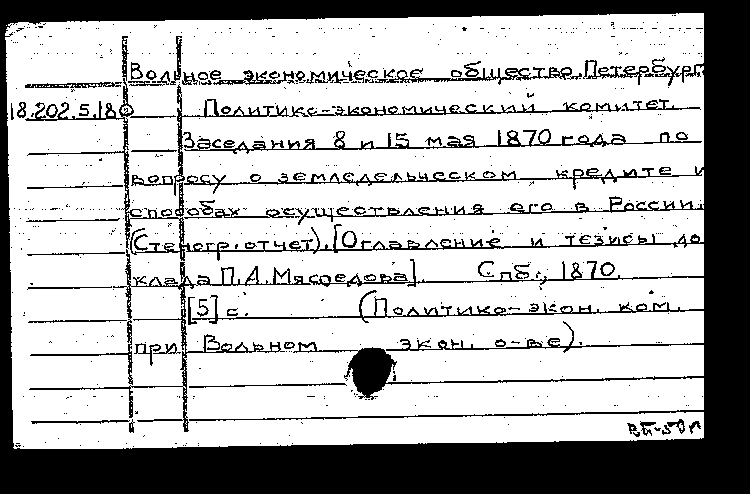 Вольное экономическое общество. Петербург
18.202.5.180 Политико-экономический комитет.
Заседания 8 и 15 мая 1870 года по
вопросу о земледельческом кредите и
способах осуществления его в России.
(Стеногр. отчет). [Оглавление и тезисы до
клада П.А. Мясоедова]. Спб., 1870.
[5] с. (Политико-экон. ком.
при Вольном экон. о-ве).